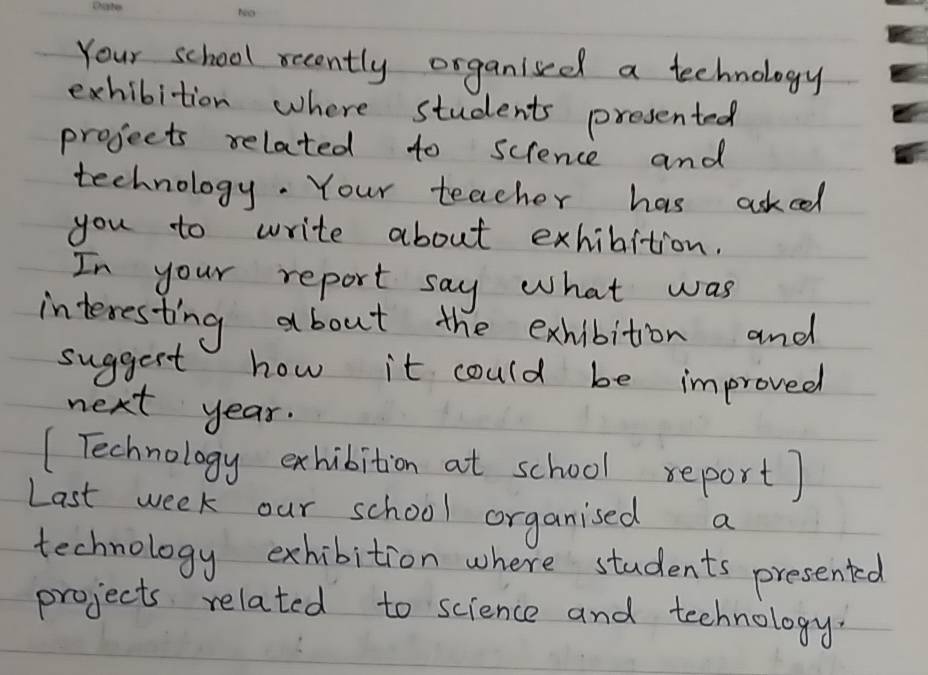 Date No
Your school recently organised a technology
exhibition where students presented
projects related to science and
technology. Your teacher has asked
you to write about exhibition.
In your report say what was
interesting about the exhibition and
suggest how it could be improved
next year.
[Technology exhibition at school report]
Last week our school organised a
technology exhibition where students presented
projects related to science and technology.